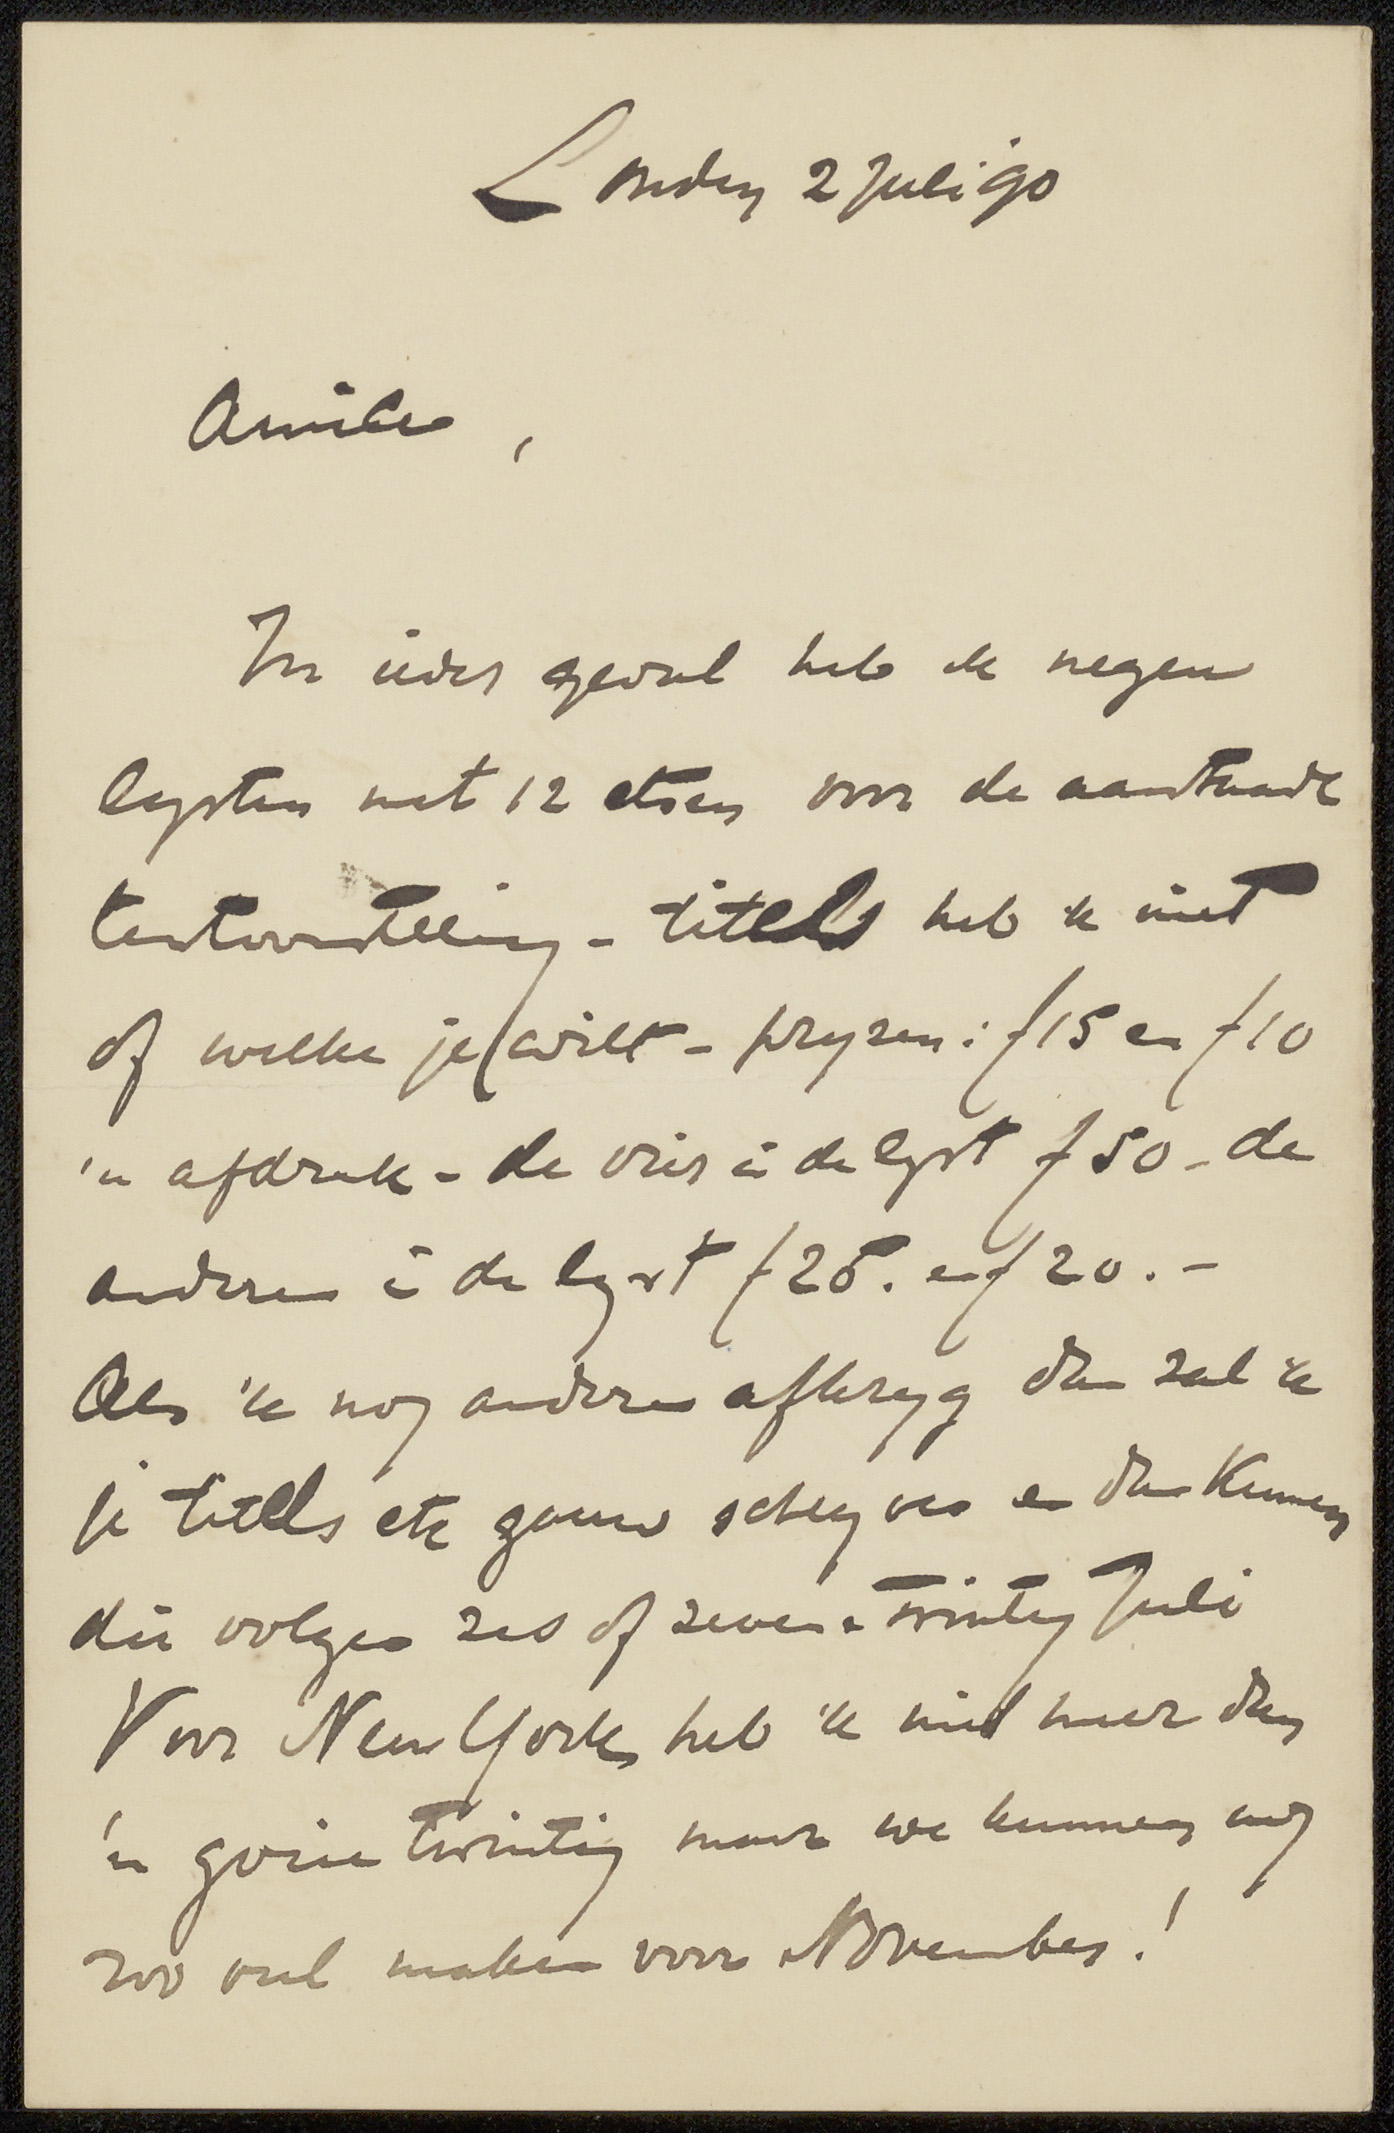 Londen 2 Juli 90
Amice,
In ieder geval heb ik negen
lysten met 12 etsen voor de aanstaande
tentoonstelling - titels heb ik niet
of welke je wilt - pryzen: f 15 en f 10
'n afdruk - de vier i de lyst f 50 - de
anderen i de lyst f 25. en f 20. -
Als 'k nog andere afkryg dan zal 'k
je titels etc gauw schryven en dan kunnen
die volgen zes of zeven en twintig Juli
Voor New York heb 'k niet meer dan
'n goeie twintig maar we kunnen nog
zoo veel maken voor November!